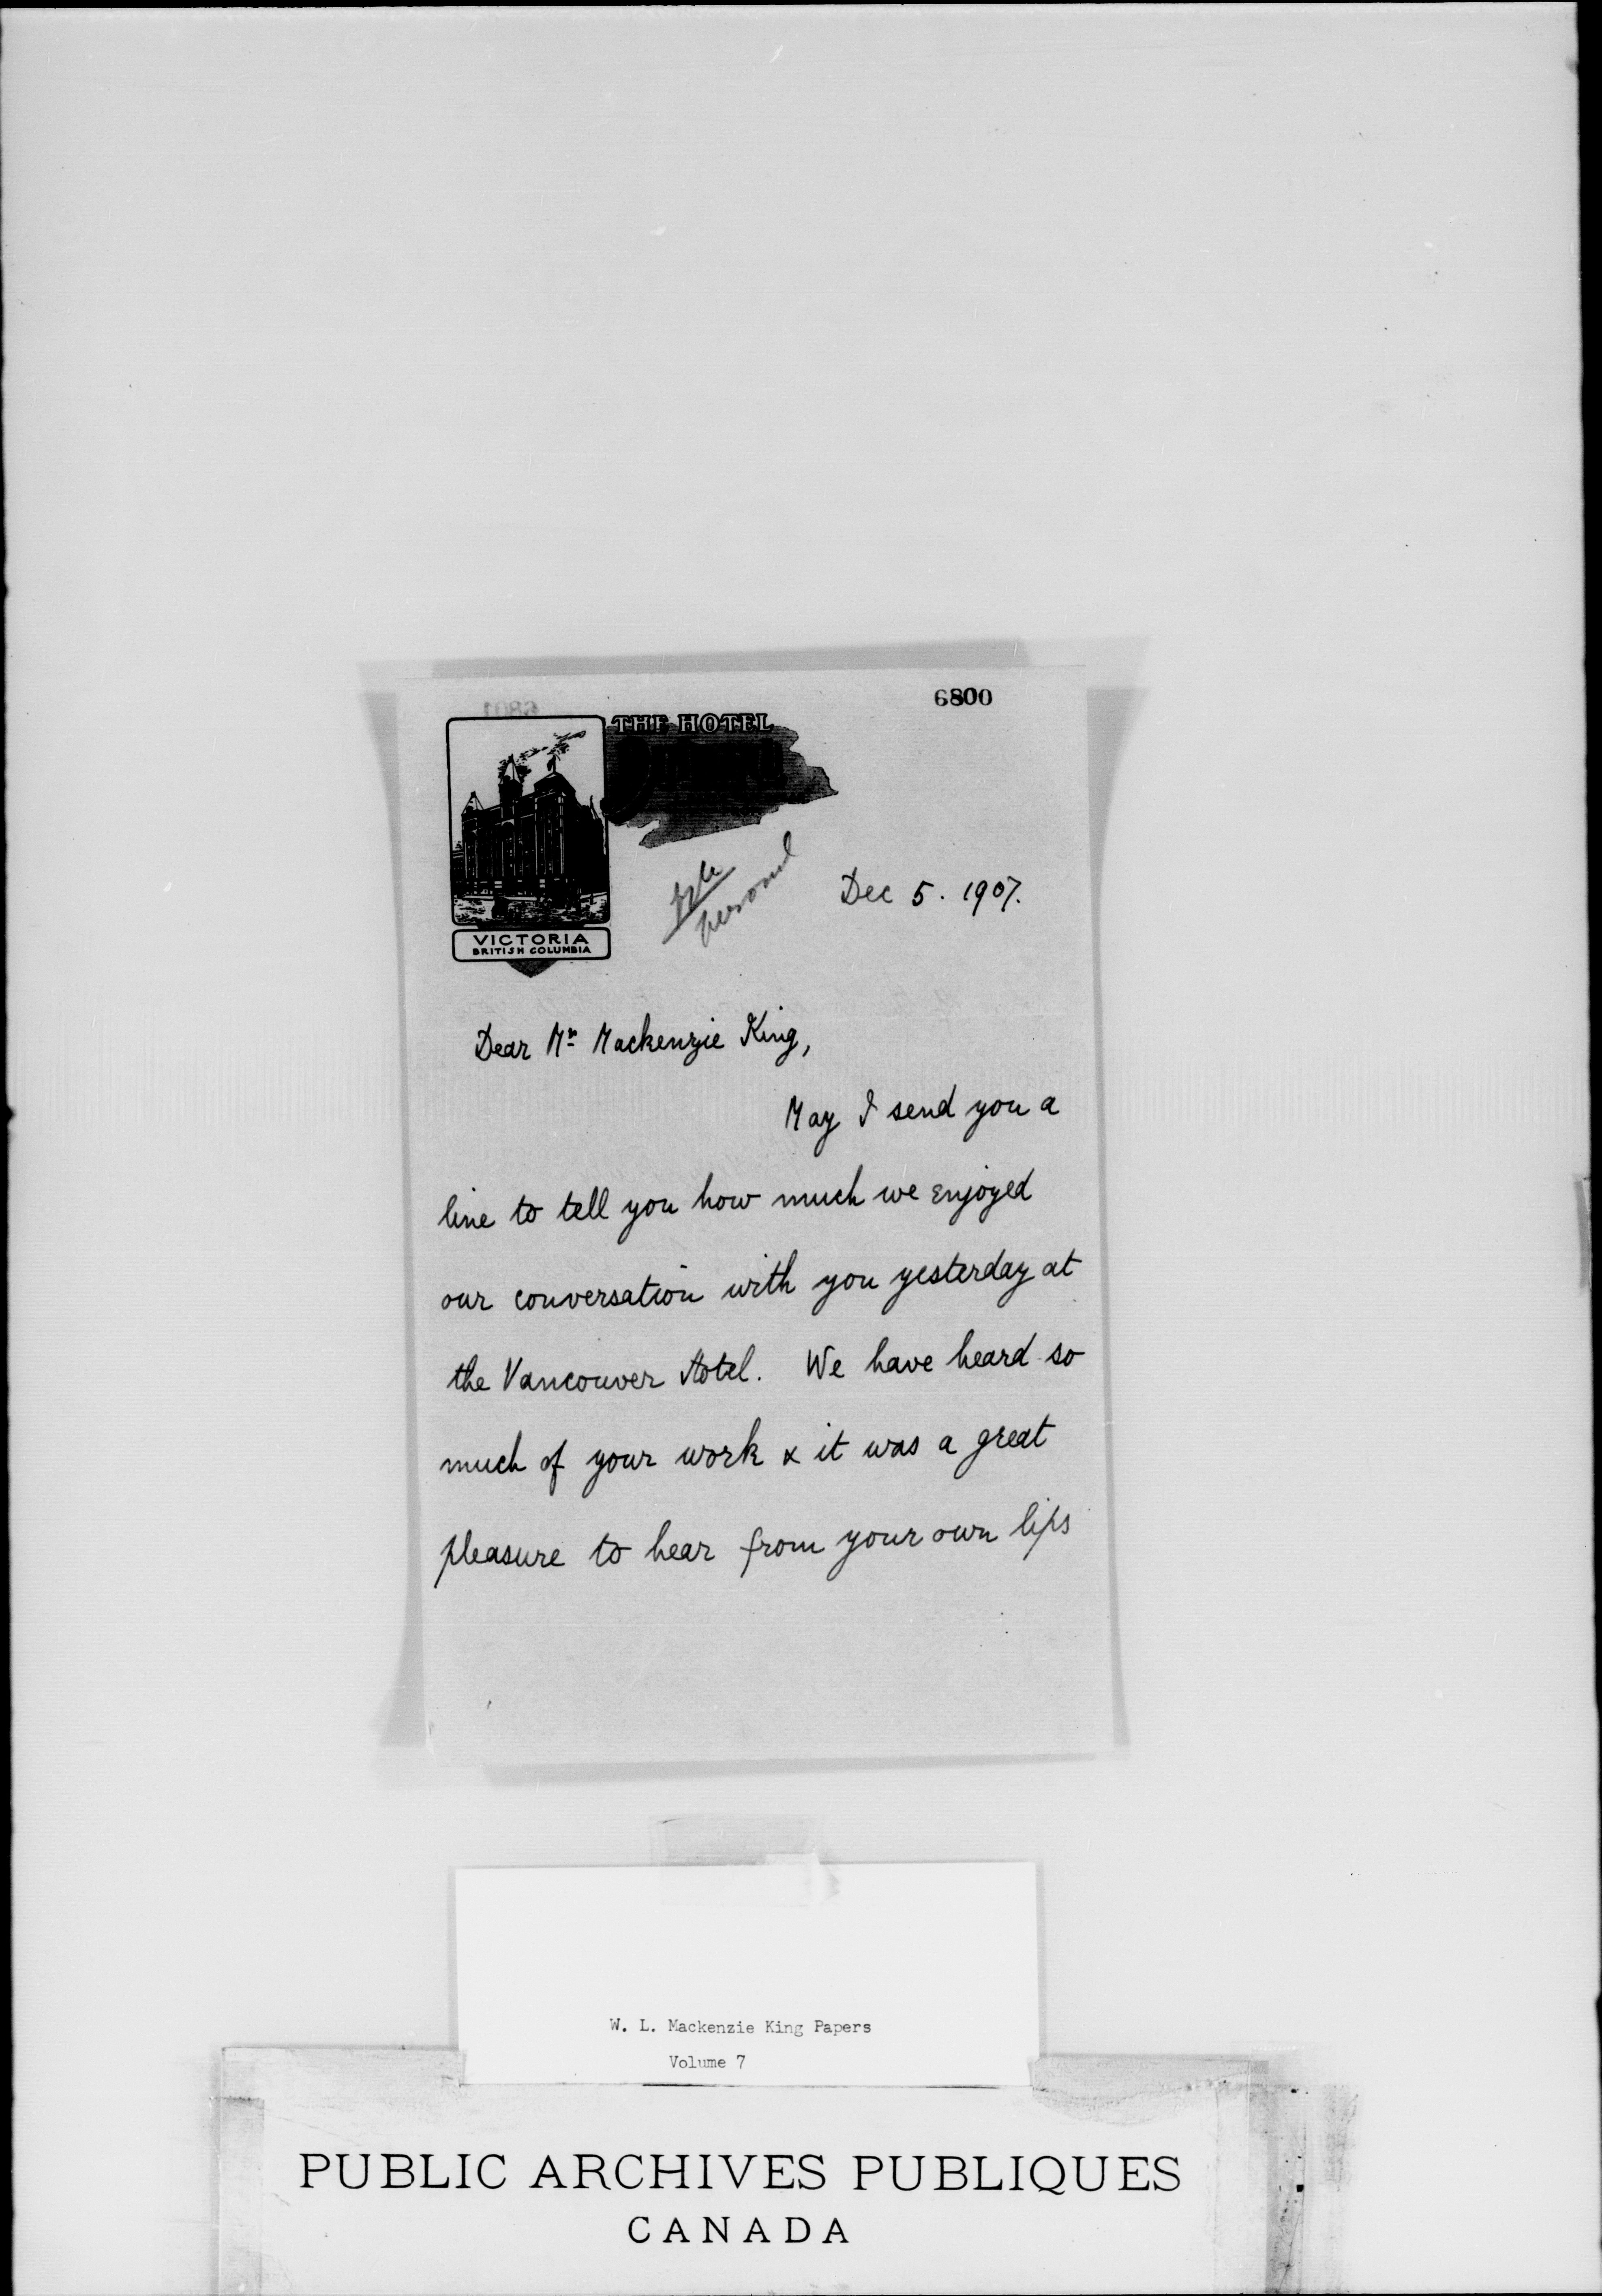 6800
THE HOTEL
VICTORIA
BRITISH COLUMBIA
personal
Dec 5. 1907.
Dear Mr Mackenzie King,
May I send you a
line to tell you how much we enjoyed
our conversation with you yesterday at
the Vancouver Hotel. We have heard so
much of your work & it was a great
pleasure to hear from your own lips
W. L. Mackenzie King Papers
Volume 7
PUBLIC ARCHIVES PUBLIQUES
CANADA